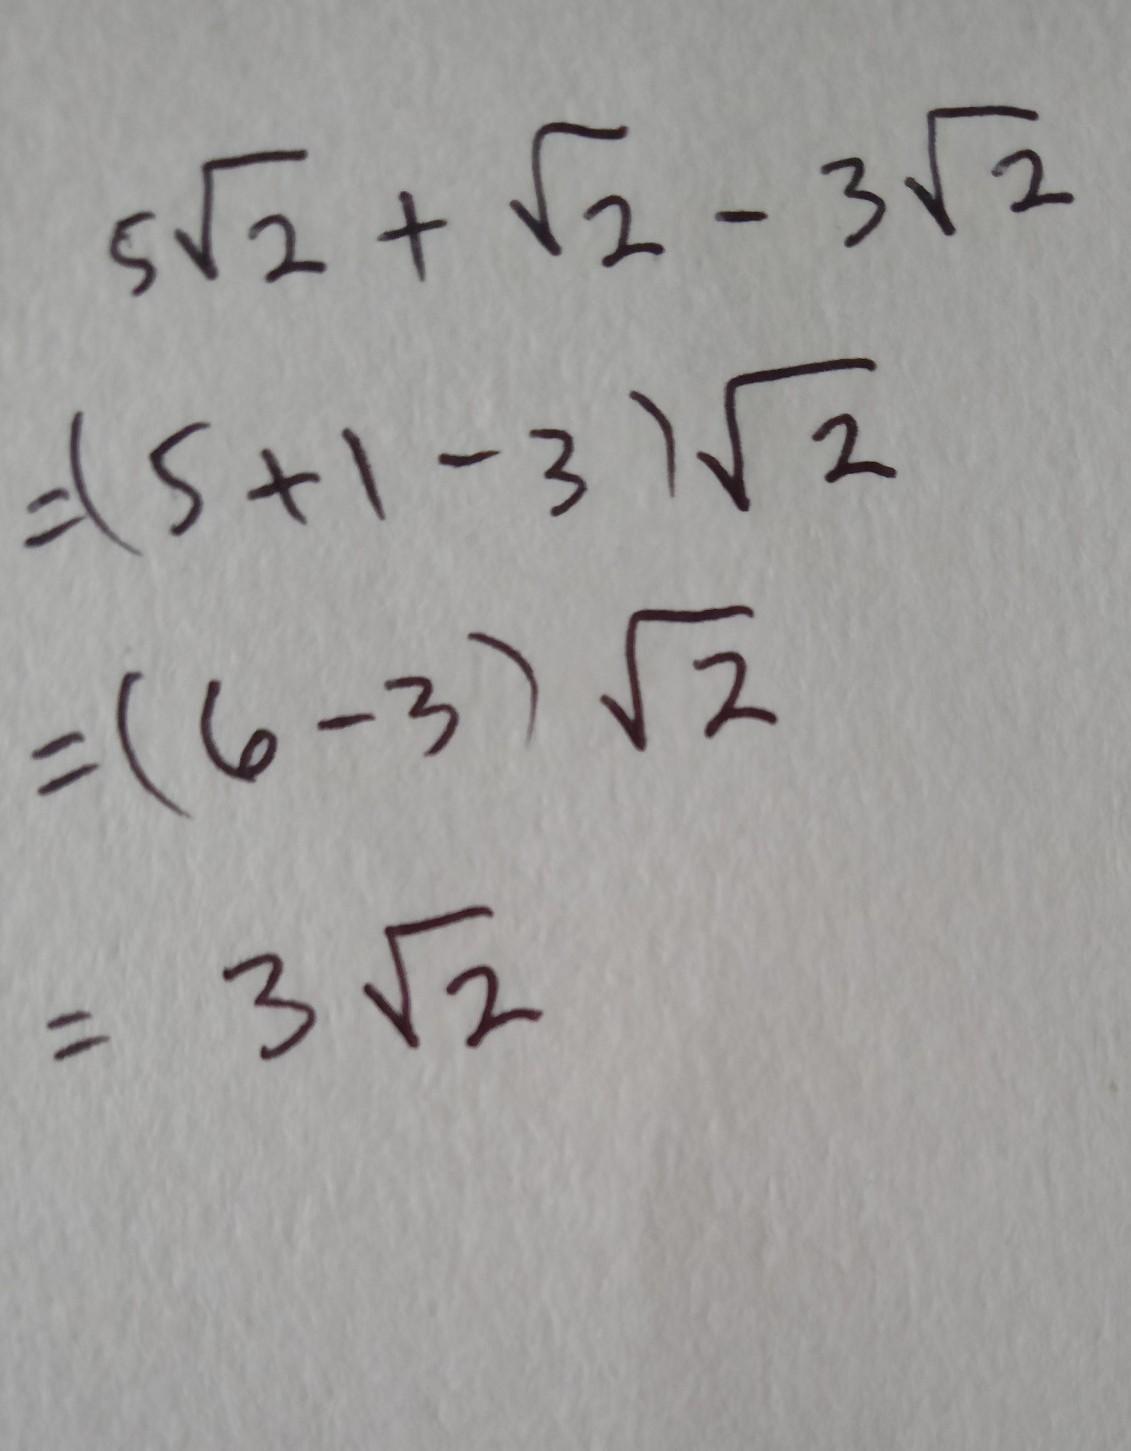 5√2 + √2 - 3√2
=(5+1-3)√2
=(6-3)√2
= 3√2